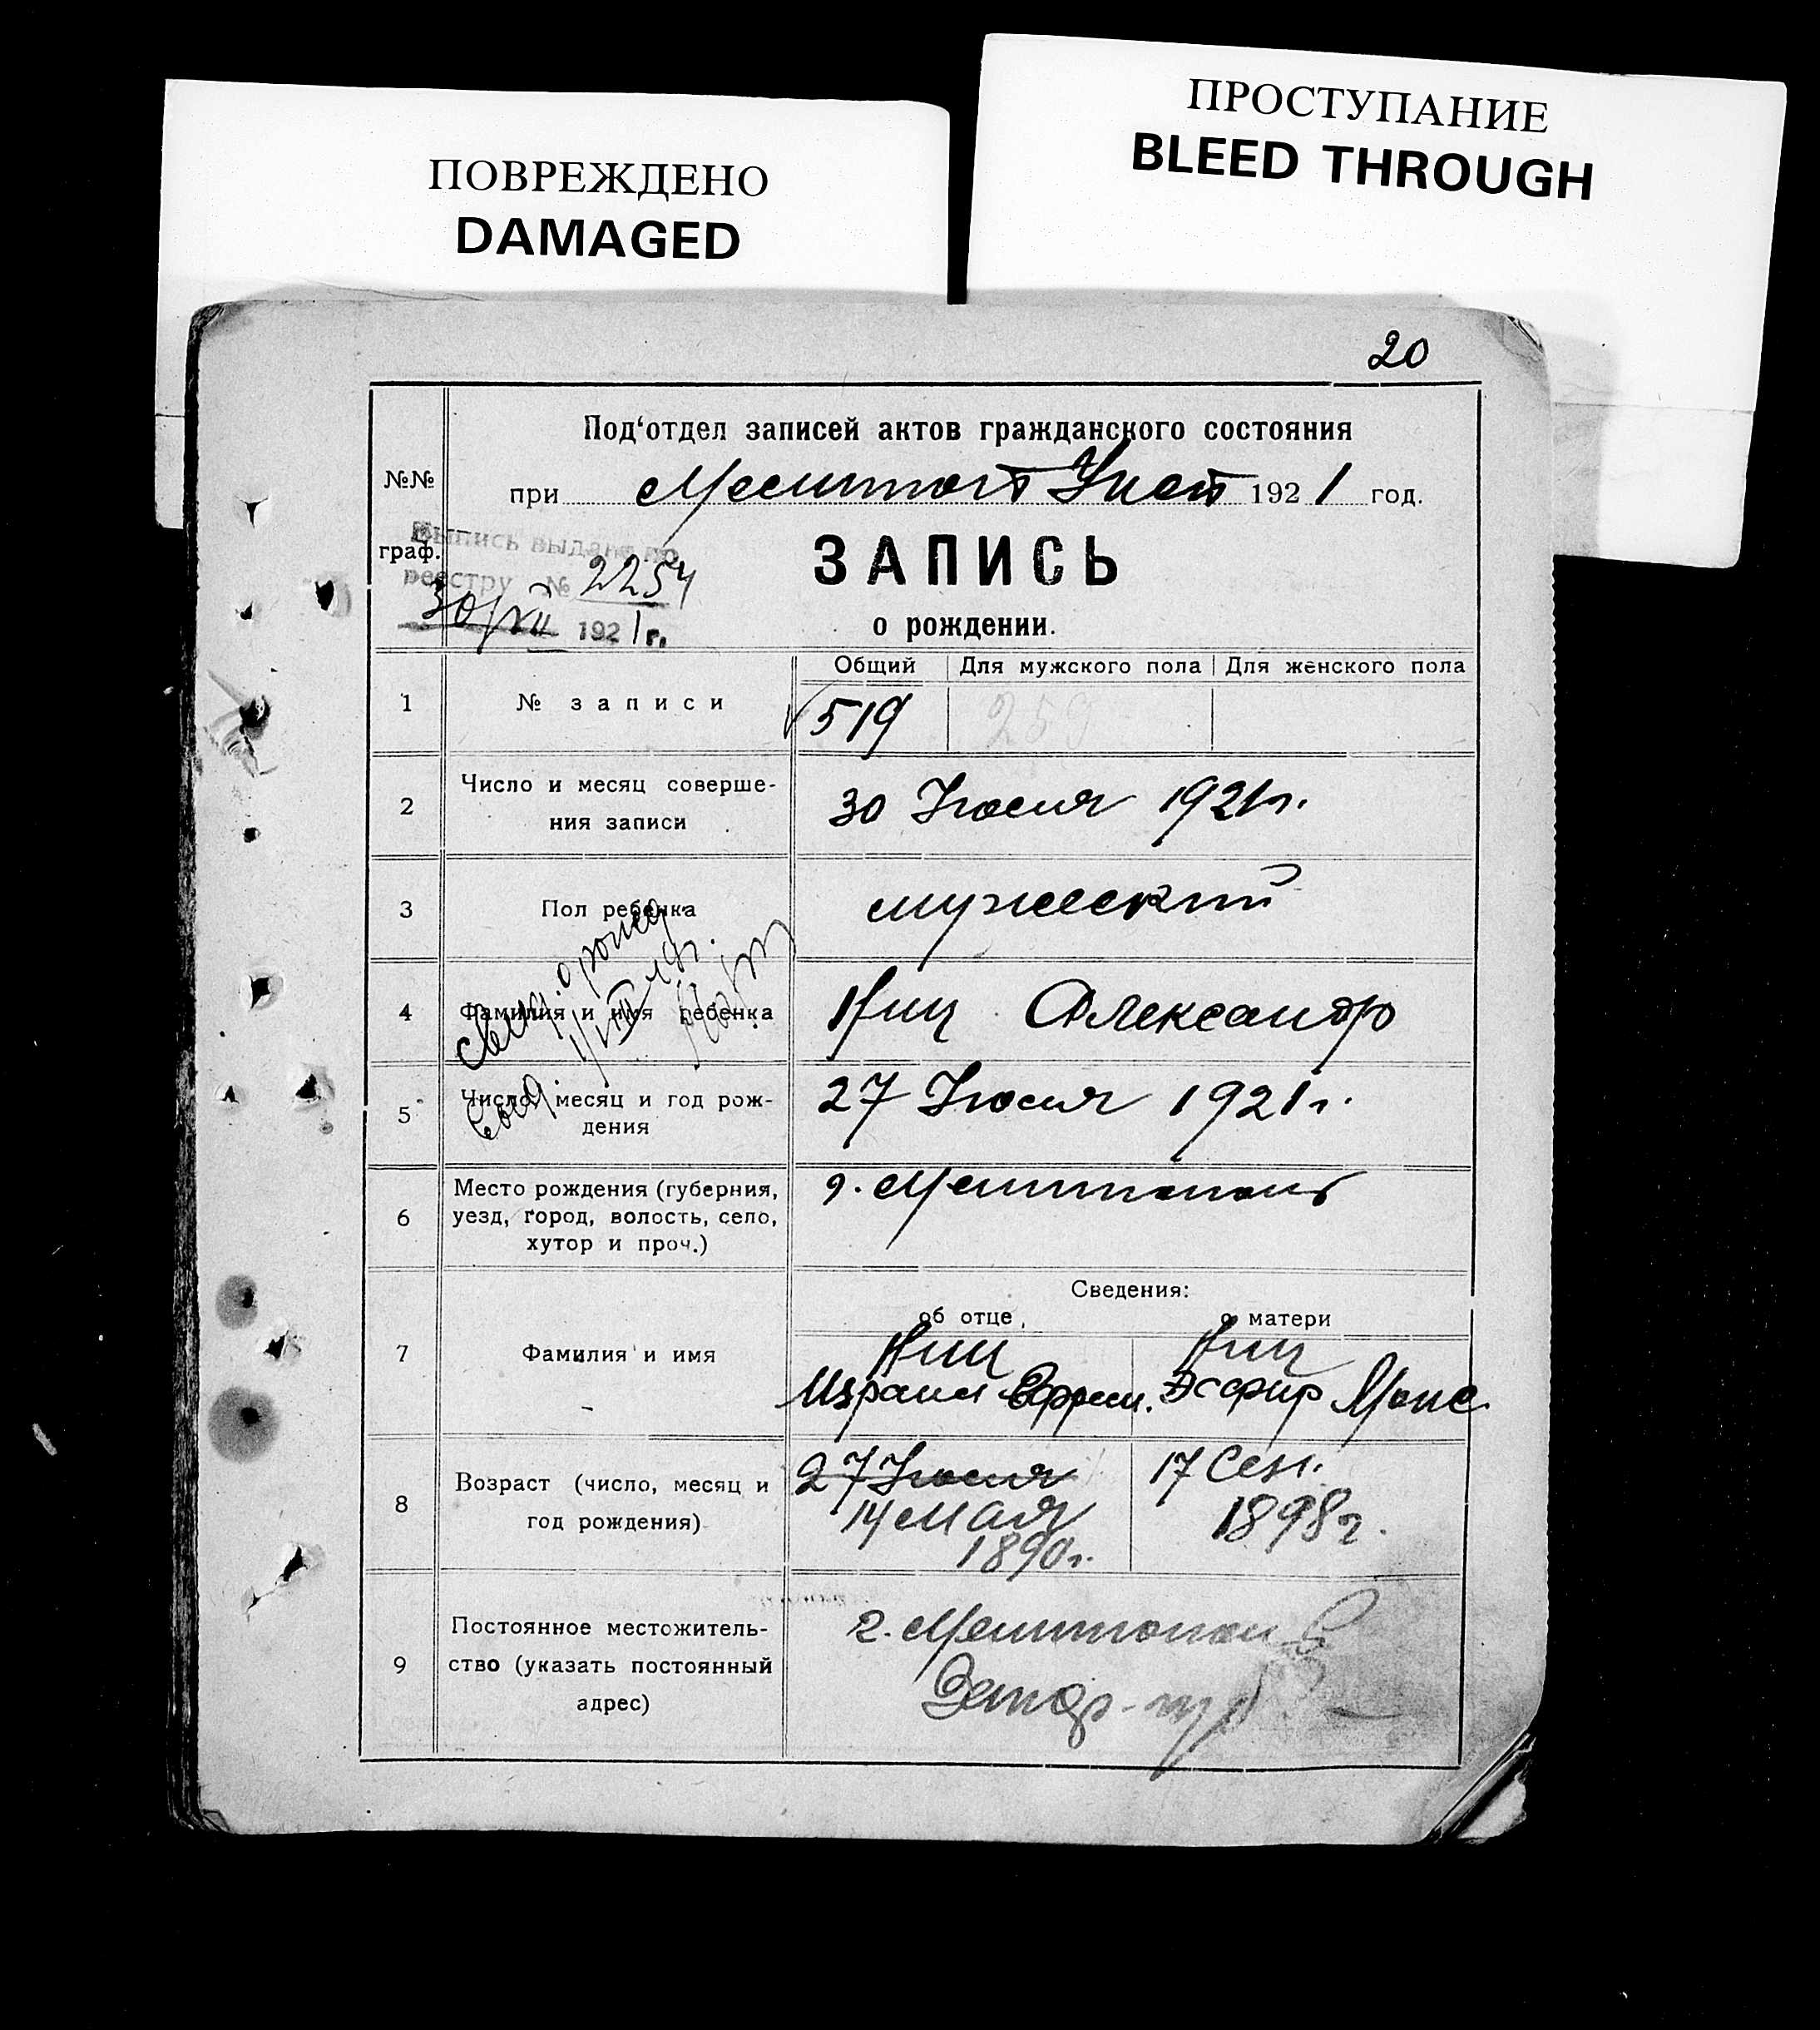 ПОВРЕЖДЕНО
DAMAGED
ПРОСТУПАНИЕ
BLEED THROUGH
20
Под‘отдел записей актов гражданского состояния
№№
при 192 1 год.
граф.
Выпись выдана по
реестру № 2254
30/XII 1921 г.
ЗАПИСЬ
о рождении.
Общий Для мужского пола Для женского пола
1 № записи 519 259
2 Число и месяц соверше-
ния записи
30 Июля 1921 г.
3 Пол ребенка мужеский
4 Фамилия и имя ребенка Нич Александр
5 Число, месяц и год рож-
дения
27 Июля 1921 г.
6 Место рождения (губерния,
уезд, город, волость, село,
хутор и проч.)
г. Мелитополь
Сведения:
об отце, о матери
7 Фамилия и имя
Нич Нич
Израил Ефрем. Эсфир
8 Возраст (число, месяц и
год рождения)
27 Июля
14 мая
1890 г.
17 Сен.
1898 г.
9 Постоянное местожитель-
ство (указать постоянный
адрес)
г. Мелитополь
Запор. губ.